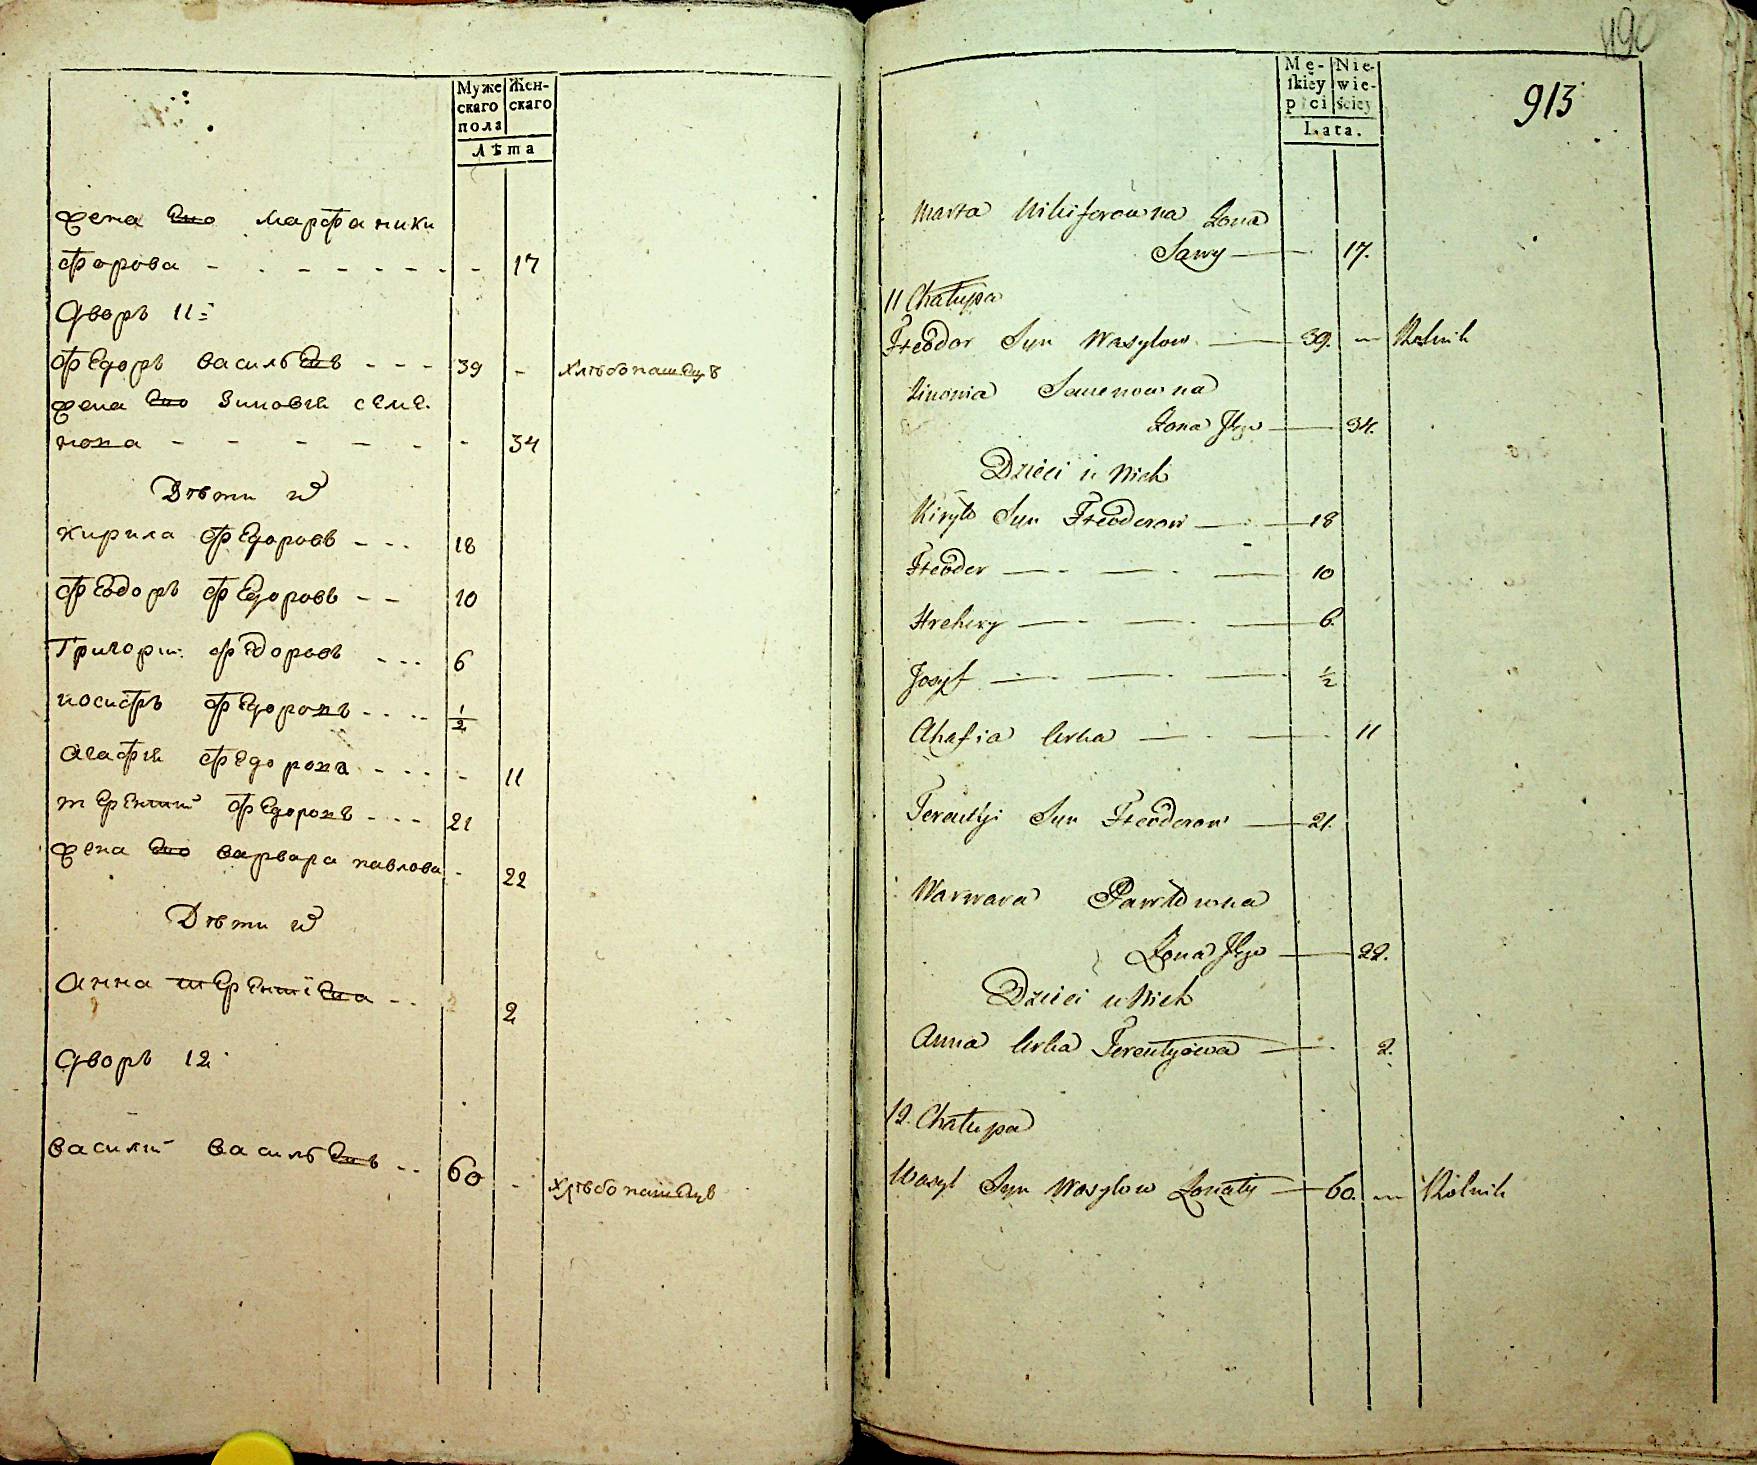 Муже
скаго
пола
Жен-
скаго
Лѣта
жена Его Марфа ники
форова - - - - - - - 17
Дворъ 11:
Федоръ васильЕвъ - - - 39 - хлѣбопашЕцъ
жена Его Зиновия сЕмЕ.
нова - - - - - - 34
Дѣти их
кирила фЕдоровъ - - - 18
фЕодоръ фЕдоровъ - - 10
Григории фЕдоровъ - - - 6
иосифъ фЕдоровъ - - - - 1/2
агафия фЕдорова - - - - 11
тЕрЕнтий фЕдоровъ - - - - 21
жена Его варвара павлова - 22
Дѣти их
анна тЕрЕнтіЕва - - 2
Дворъ 12
василий васильЕвъ - - 60 - хлѣбопашЕцъ
490
913
Mę-
skiéy
płci
Nie-
wie-
ściey
Lata.
Marta Nikiforowna Żona
Sawy — 17.
11 Chałupa
Fteodor Syn Wasylow — 39. — Rolnik
Zinowia Semenowna
Żona Jego — 34.
Dzieci u Nich
Kiryło Syn Fteodorow — 18
Fteodor — — — 10
Hrehory — — — 6.
Josyf — — — 1/2
Ahafia Corka — — 11
Terentyi Syn Fteodorow — 21.
Warwara Pawłowna
Żona Jego — 22.
Dzieci u Nich
Anna Corka Terentyowa — 2.
12. Chałupa
Wasyl Syn Wasylow Żonaty — 60. — Rolnik